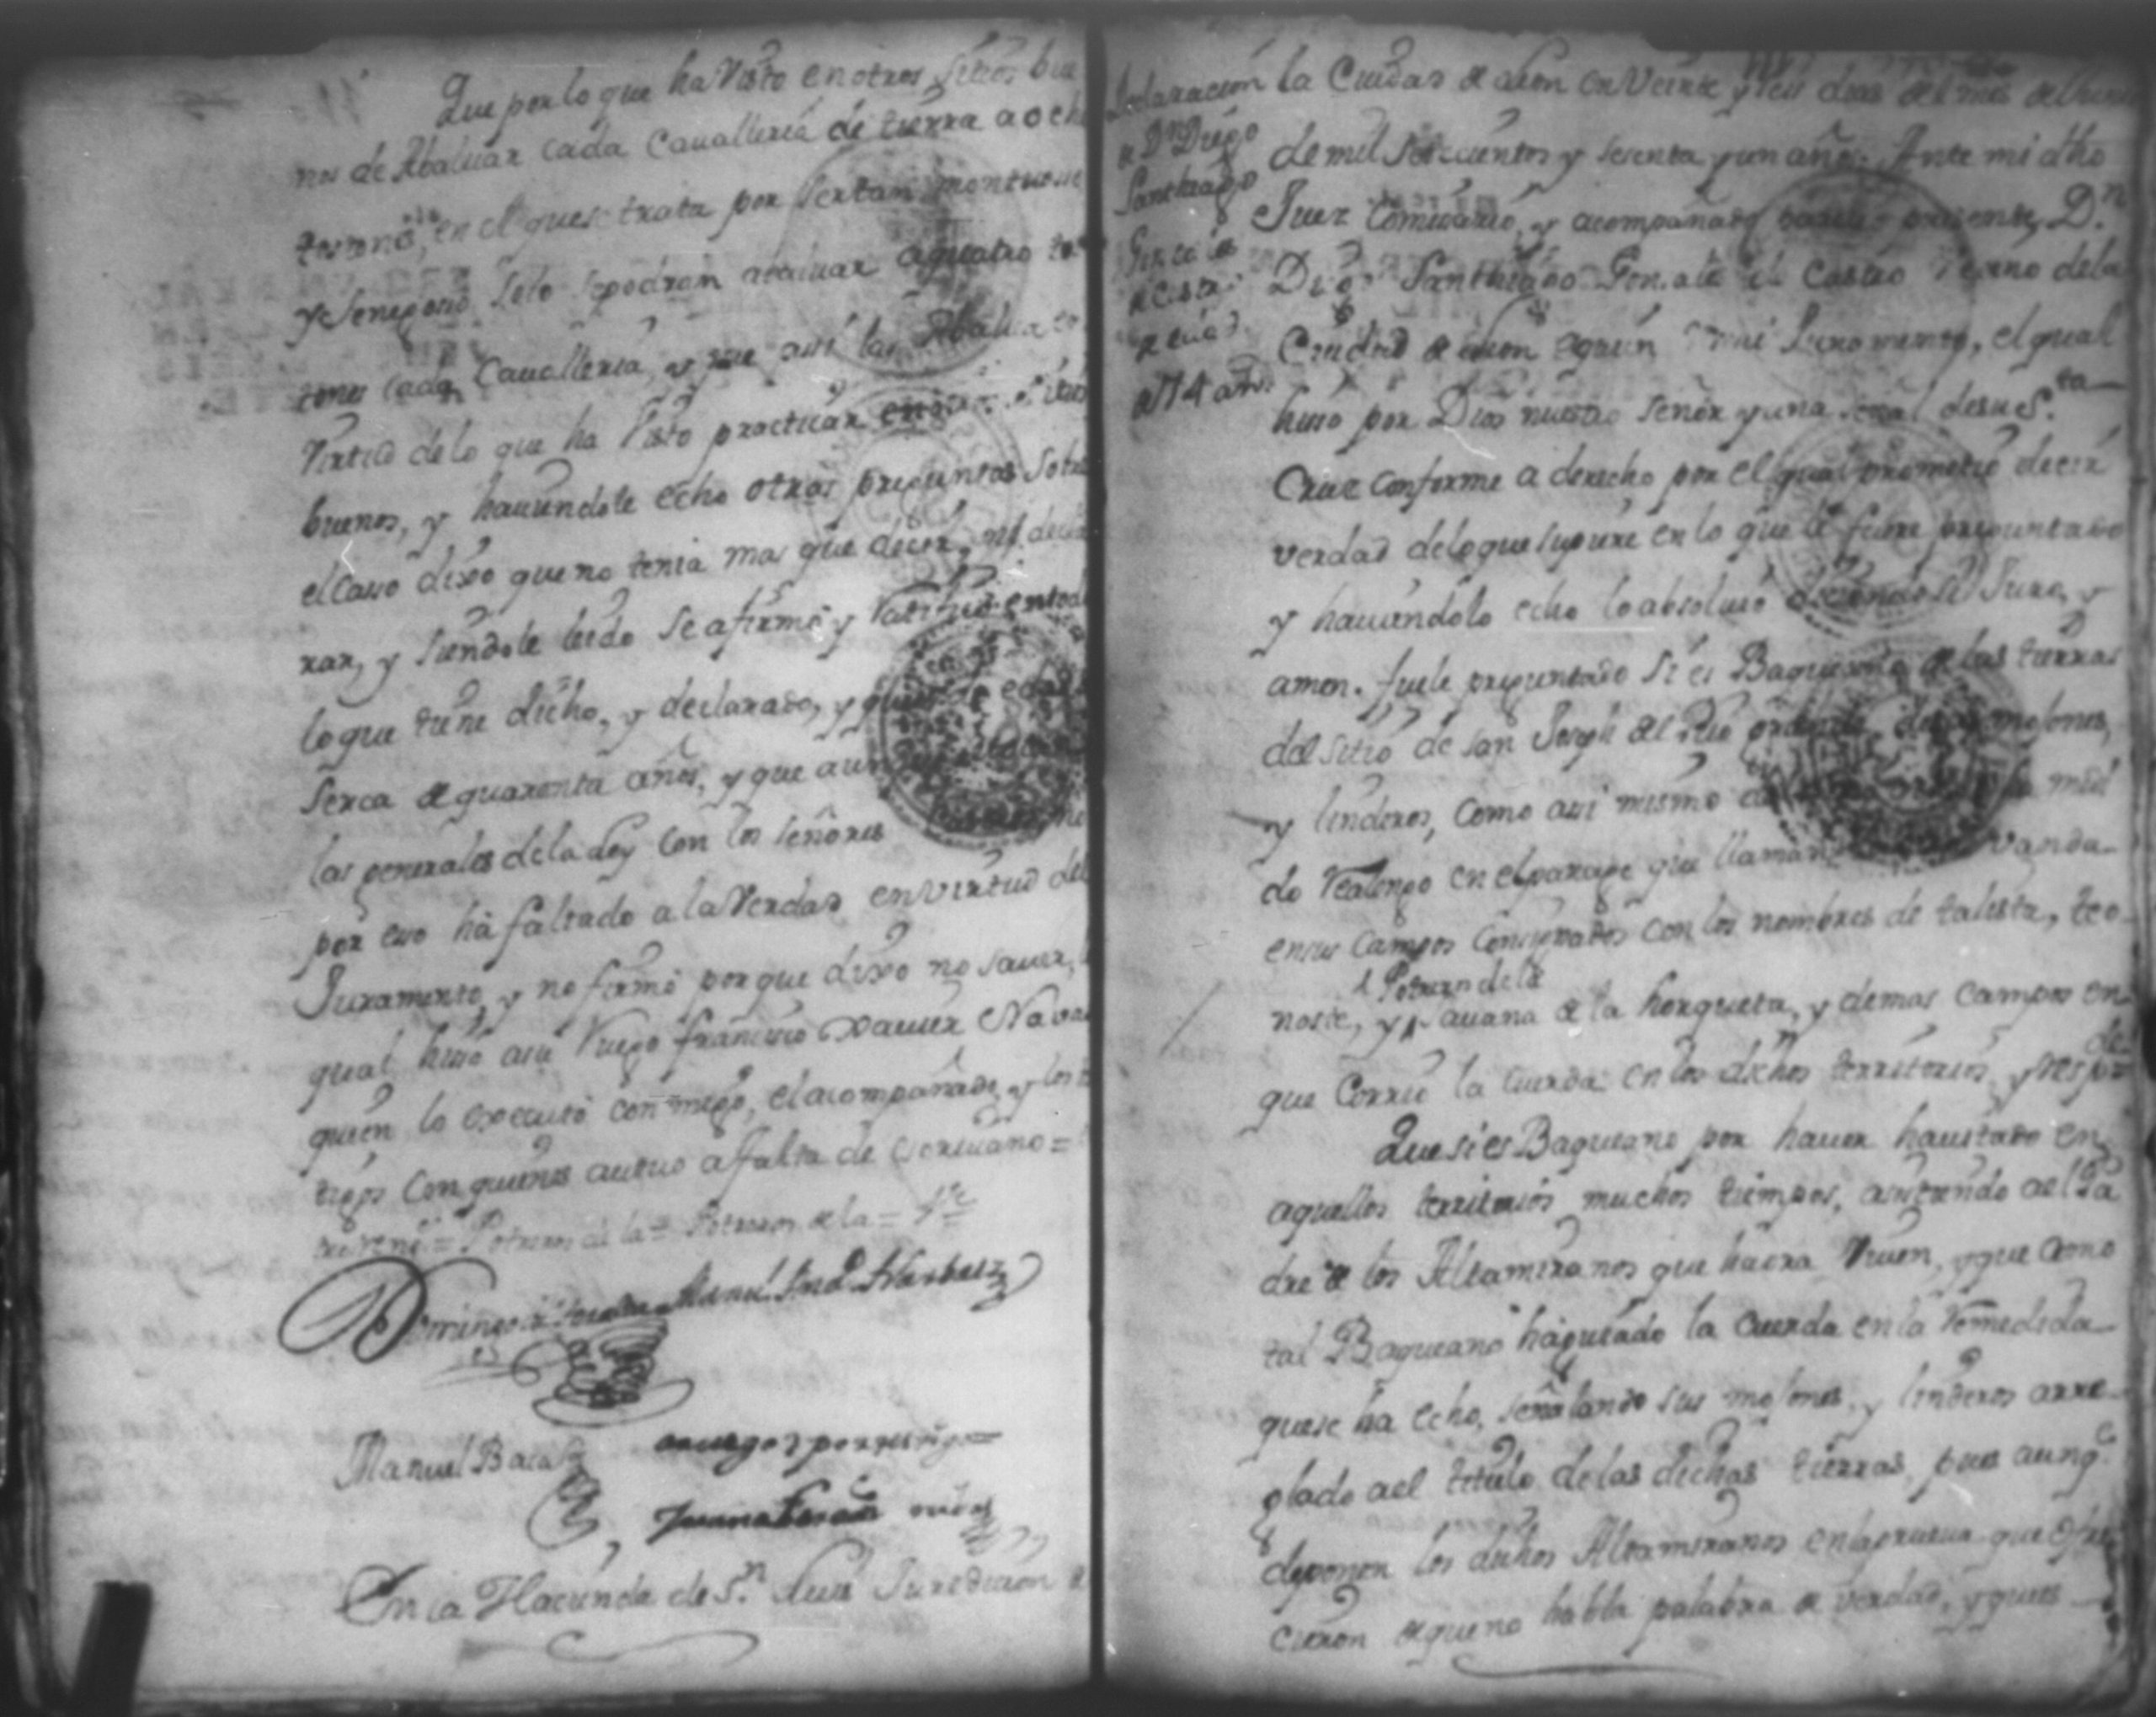 Que por lo que ha Visto en otros Sitios bue
nos de Abaluar cada Cavalleria de tierra a och
tostones, en el que se trata por ser tan montuoso
y Senegoso solo se podran avaluar a quatro tos
tones cada Cavalleria, y que assi las Abalua en
Virtud de lo que ha Visto practicar en otros Sitios
buenos, y haviendole echo otras preguntas Sobre
el caso dixo que no tenia mas que decir, ni decla
rar, y siendole leido Se afirmó y Ratificó en todo
lo que tiene dicho, y declarado, y que es de edad
Serca de quarenta años, y que aun
las generales de la Ley con los Señores
por eso ha faltado a la Verdad en virtud del
Juramento, y no firmó porque dixo no saver, l
qual hizo a su Ruego francisco Xavier Nava
quien lo executó conmigo, el acompañado, y los t
tigos con quienes autuo a falta de escrivano =
Potreros de la = Potreros de la =
Manuel Baca
a ruego y por testigo =
En la Hacienda de S.n Luis Juredicion d
Declaracion
de Dn Diego
Santhiago
Gonzales
de Castro
de edad
de 74 años.
la Ciudad de Leon en Veinte y seis dias del mes de
de mil Setecientos y sesenta y un años. Ante mi dho
Juez Comisario, y acompañado paresio presente, D.n
Diego Santhiago Gonzales de Castro Vecino de la
Ciudad de Leon segun mi Juramento, el qual
hizo por Dios nuestro Señor y una señal de su S.ta
Cruz conforme a derecho por el qual prometió decir
verdad de lo que supiere en lo que le fuere preguntado
y haviendolo echo lo absolvió diciendo Si Juro, y
amen. fuele preguntado Si es Baqueano de las tierras
del sitio de san Joseph del Rio de sus mojones,
y linderos, como assi mismo de medi
do Realengo en el parage que llaman Vanda
en sus Campos Consignados con los nombres de talista, teo
noste, y Potrero de la Savana de la horqueta, y demas Campos en
que Corrió la Cuerda en los dichos territorios, y respde
Que si es Baqueano por haver havitado en
aquellos territorios muchos tiempos, asistiendo al Pa
dre de los Altamiranos que haora Viven, y que como
tal Baqueano ha guiado la Cuerda en la Remedida
que se ha echo, señalando sus mojones, y linderos arre
glado a el titulo de las dichas tierras, pues aunq.e
deponen los dichos Altamiranos en la prueva que ofre
cieron de que no habla palabra de verdad, y que es